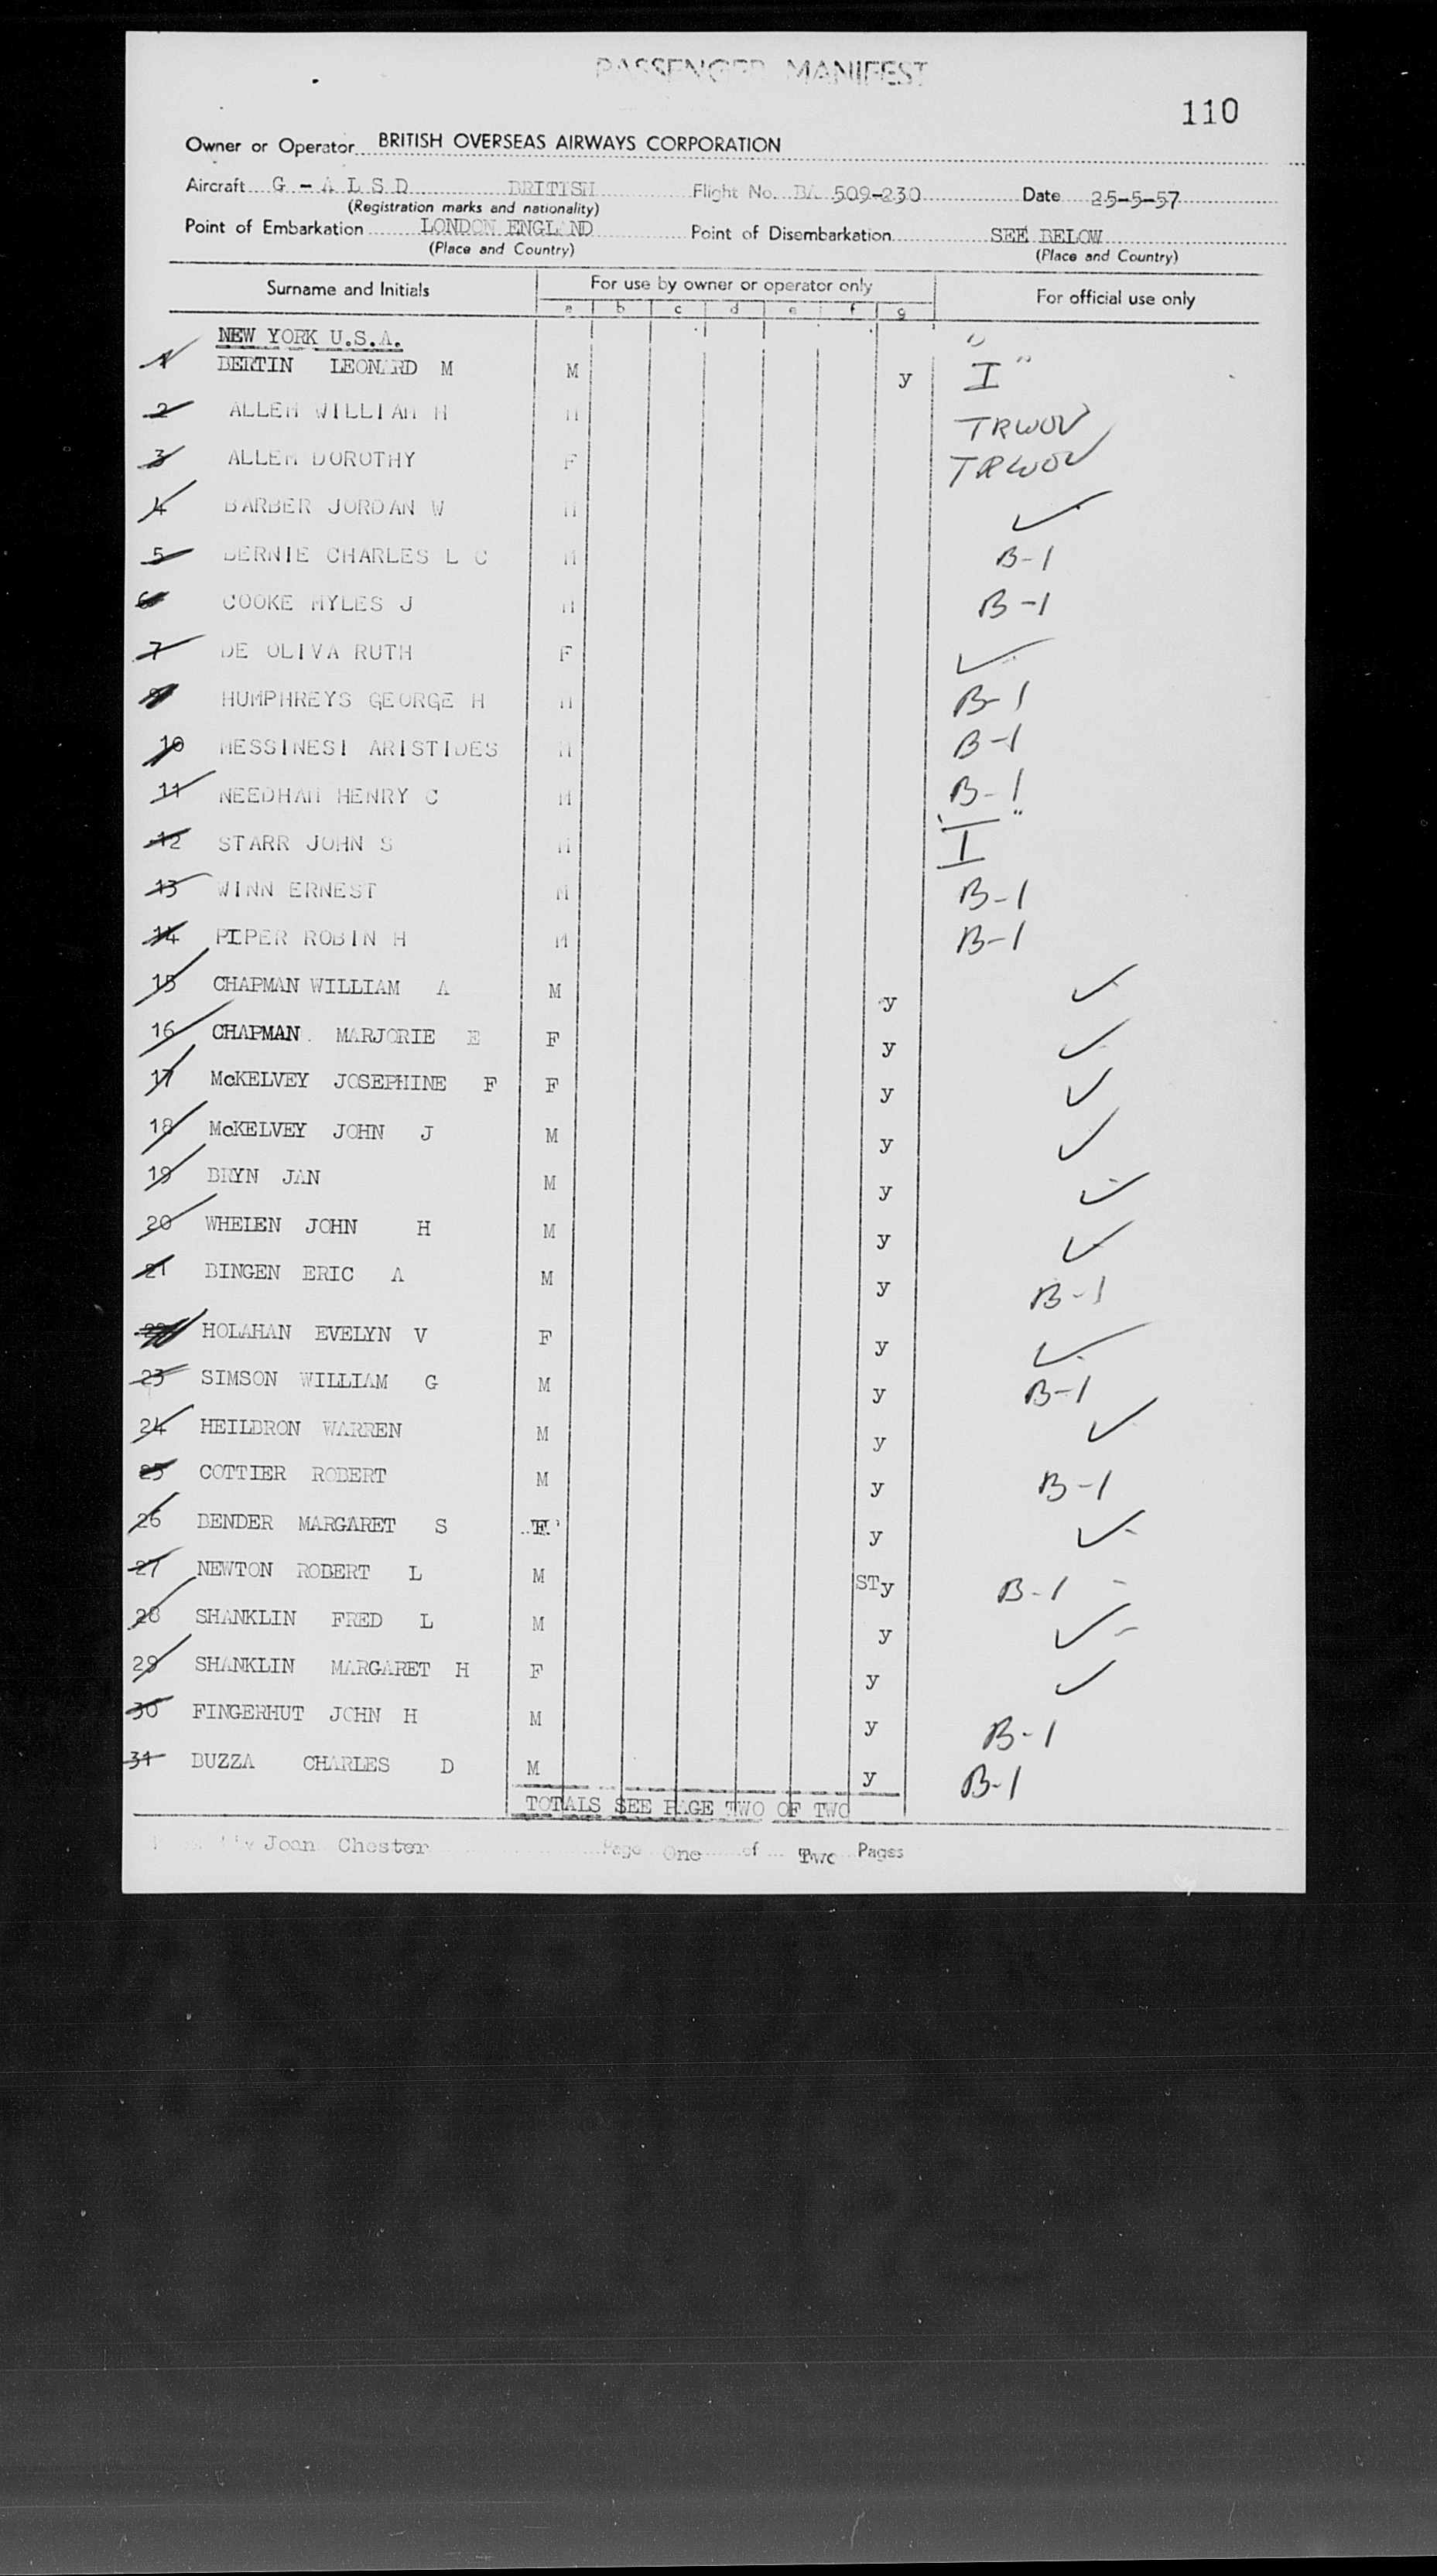 PASSENGER MANIFEST
110
Owner or Operator BRITISH OVERSEAS AIRWAYS CORPORATION
Aircraft G - A L S D BRITISH Flight No. BA 509-230 Date 25-5-57
(Registration marks and nationality)
Point of Embarkation LONDON ENGLAND Point of Disembarkation SEE BELOW
(Place and Country) (Place and Country)
Surname and Initials For use by owner or operator only For official use only
a b c d e f g
NEW YORK U.S.A.
1 BERTIN LEONARD M M y "I"
2 ALLEM WILLIAM H M TRWOV
3 ALLEM DOROTHY F TRWOV
4 BARBER JORDAN W M ✓
5 BERNIE CHARLES L C M B-1
6 COOKE MYLES J M B-1
7 DE OLIVA RUTH F ✓
HUMPHREYS GEORGE H M B-1
10 MESSINESI ARISTIDES M B-1
11 NEEDHAM HENRY C M B-1
12 STARR JOHN S M "I"
13 WINN ERNEST M B-1
14 PIPER ROBIN H M B-1
15 CHAPMAN WILLIAM A M y ✓
16 CHAPMAN MARJORIE E F y ✓
17 McKELVEY JOSEPHINE F F y ✓
18 McKELVEY JOHN J M y ✓
19 BRYN JAN M y ✓
20 WHELEN JOHN H M y ✓
21 BINGEN ERIC A M y B-1
22 HOLAHAN EVELYN V F y ✓
23 SIMSON WILLIAM G M y B-1
24 HEILBRON WARREN M y ✓
25 COTTIER ROBERT M y B-1
26 BENDER MARGARET S F y ✓
27 NEWTON ROBERT L M STy B-1
28 SHANKLIN FRED L M y ✓
29 SHANKLIN MARGARET H F y ✓
30 FINGERHUT JOHN H M y B-1
31 BUZZA CHARLES D M y B-1
TOTALS SEE PAGE TWO OF TWO
by Joan Chester Page One of Two Pages